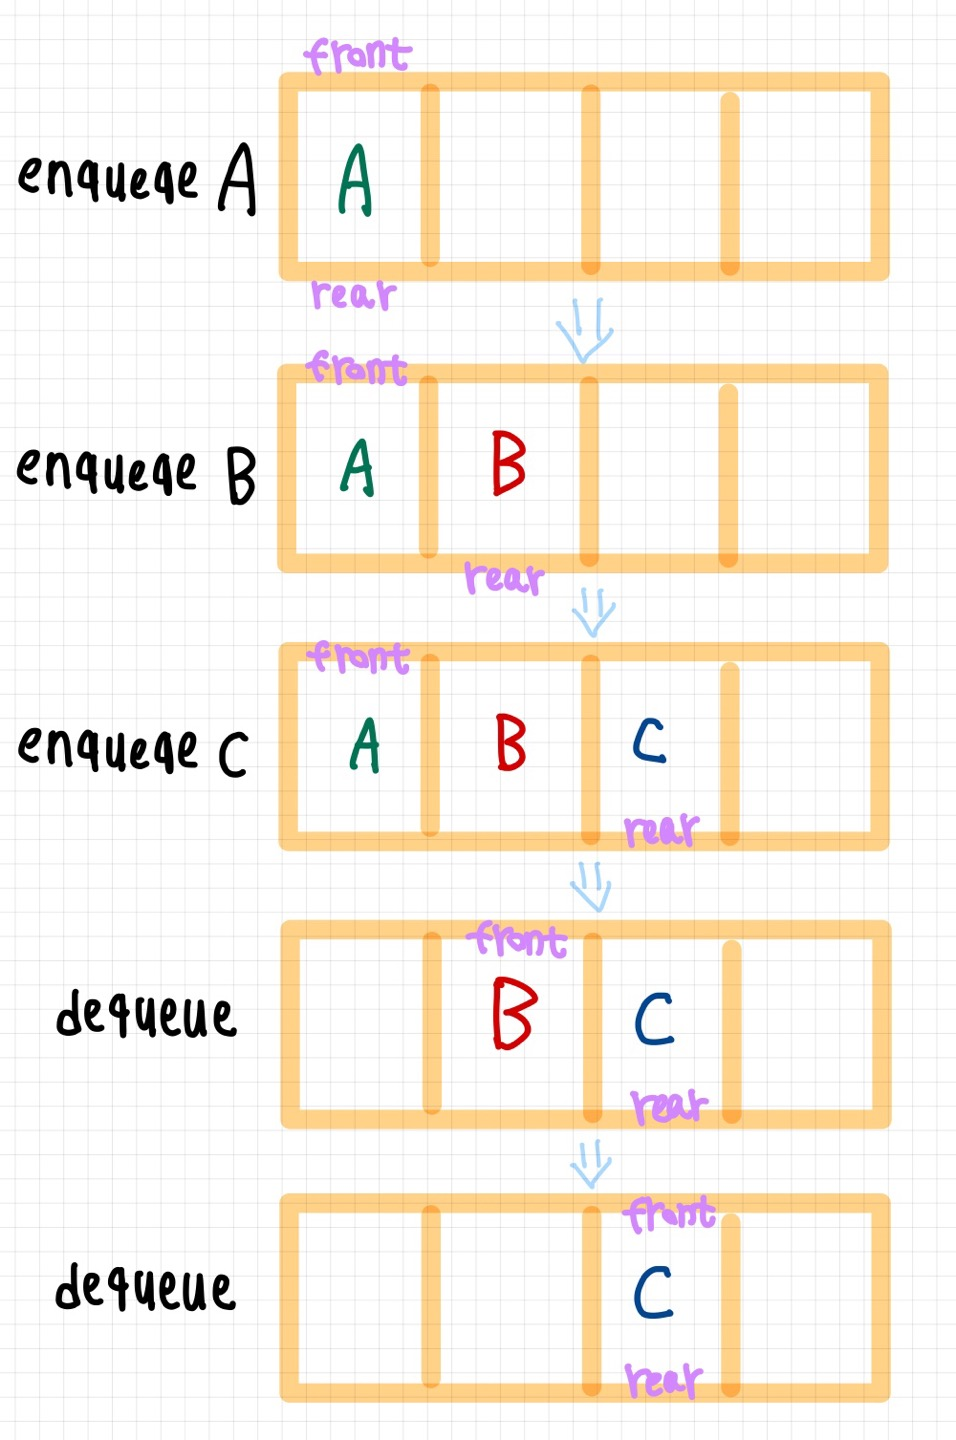 front
enqueqe A A
rear
front
enqueqe B A B
rear
front
enqueqe C A B C
rear
front
dequeue B C
rear
front
dequeue C
rear